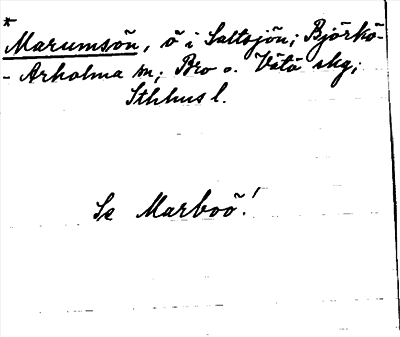 *
Marumsön, ö i Saltsjön; Björkö-
- Arholma sn; Bro o. Vätö skg;
Sthlms l.
Se Marboö!